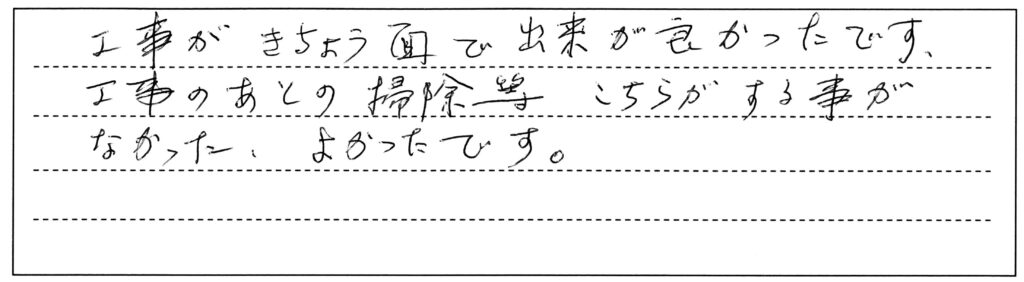 工事がきちょう面で出来が良かったです、
工事のあとの掃除等こちらがする事が
なかった、よかったです。